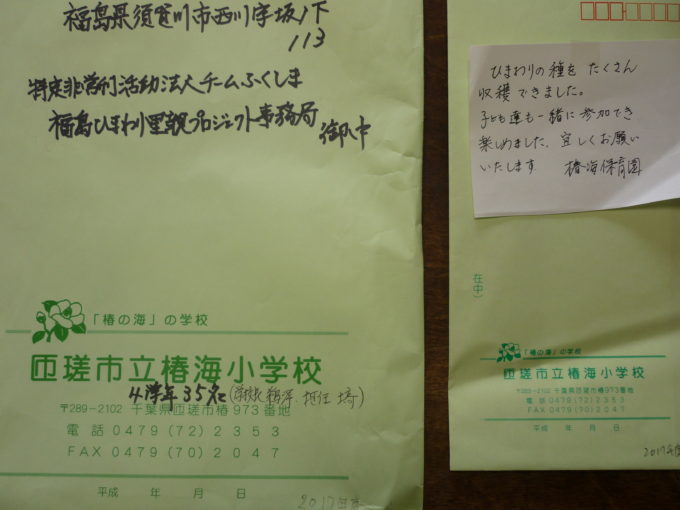 福島県須賀川市西川字坂ノ下
113
特定非営利活動法人チームふくしま
福島ひまわり里親プロジェクト事務局
御中
「椿の海」の学校
匝瑳市立椿海小学校
4学年35名
〒289-2102 千葉県匝瑳市椿973番地
電話 0479(72)2353
FAX 0479(70)2047
平成 年 月 日
2017年度
ひまわりの種を たくさん
収穫できました。
子ども達も一緒に参加でき
楽しめました。宜しくお願い
いたします 椿海保育園
在中)
「椿の海」の学校
匝瑳市立椿海小学校
〒289-2102 千葉県匝瑳市椿973番地
電話 0479(72)2353
FAX 0479(70)2047
平成 年 月 日
2017年度